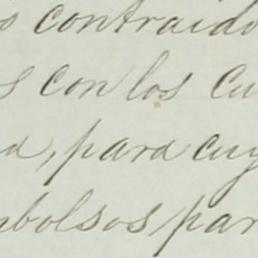 s contraido
s con los cu
a, para cuy
mbolsos par